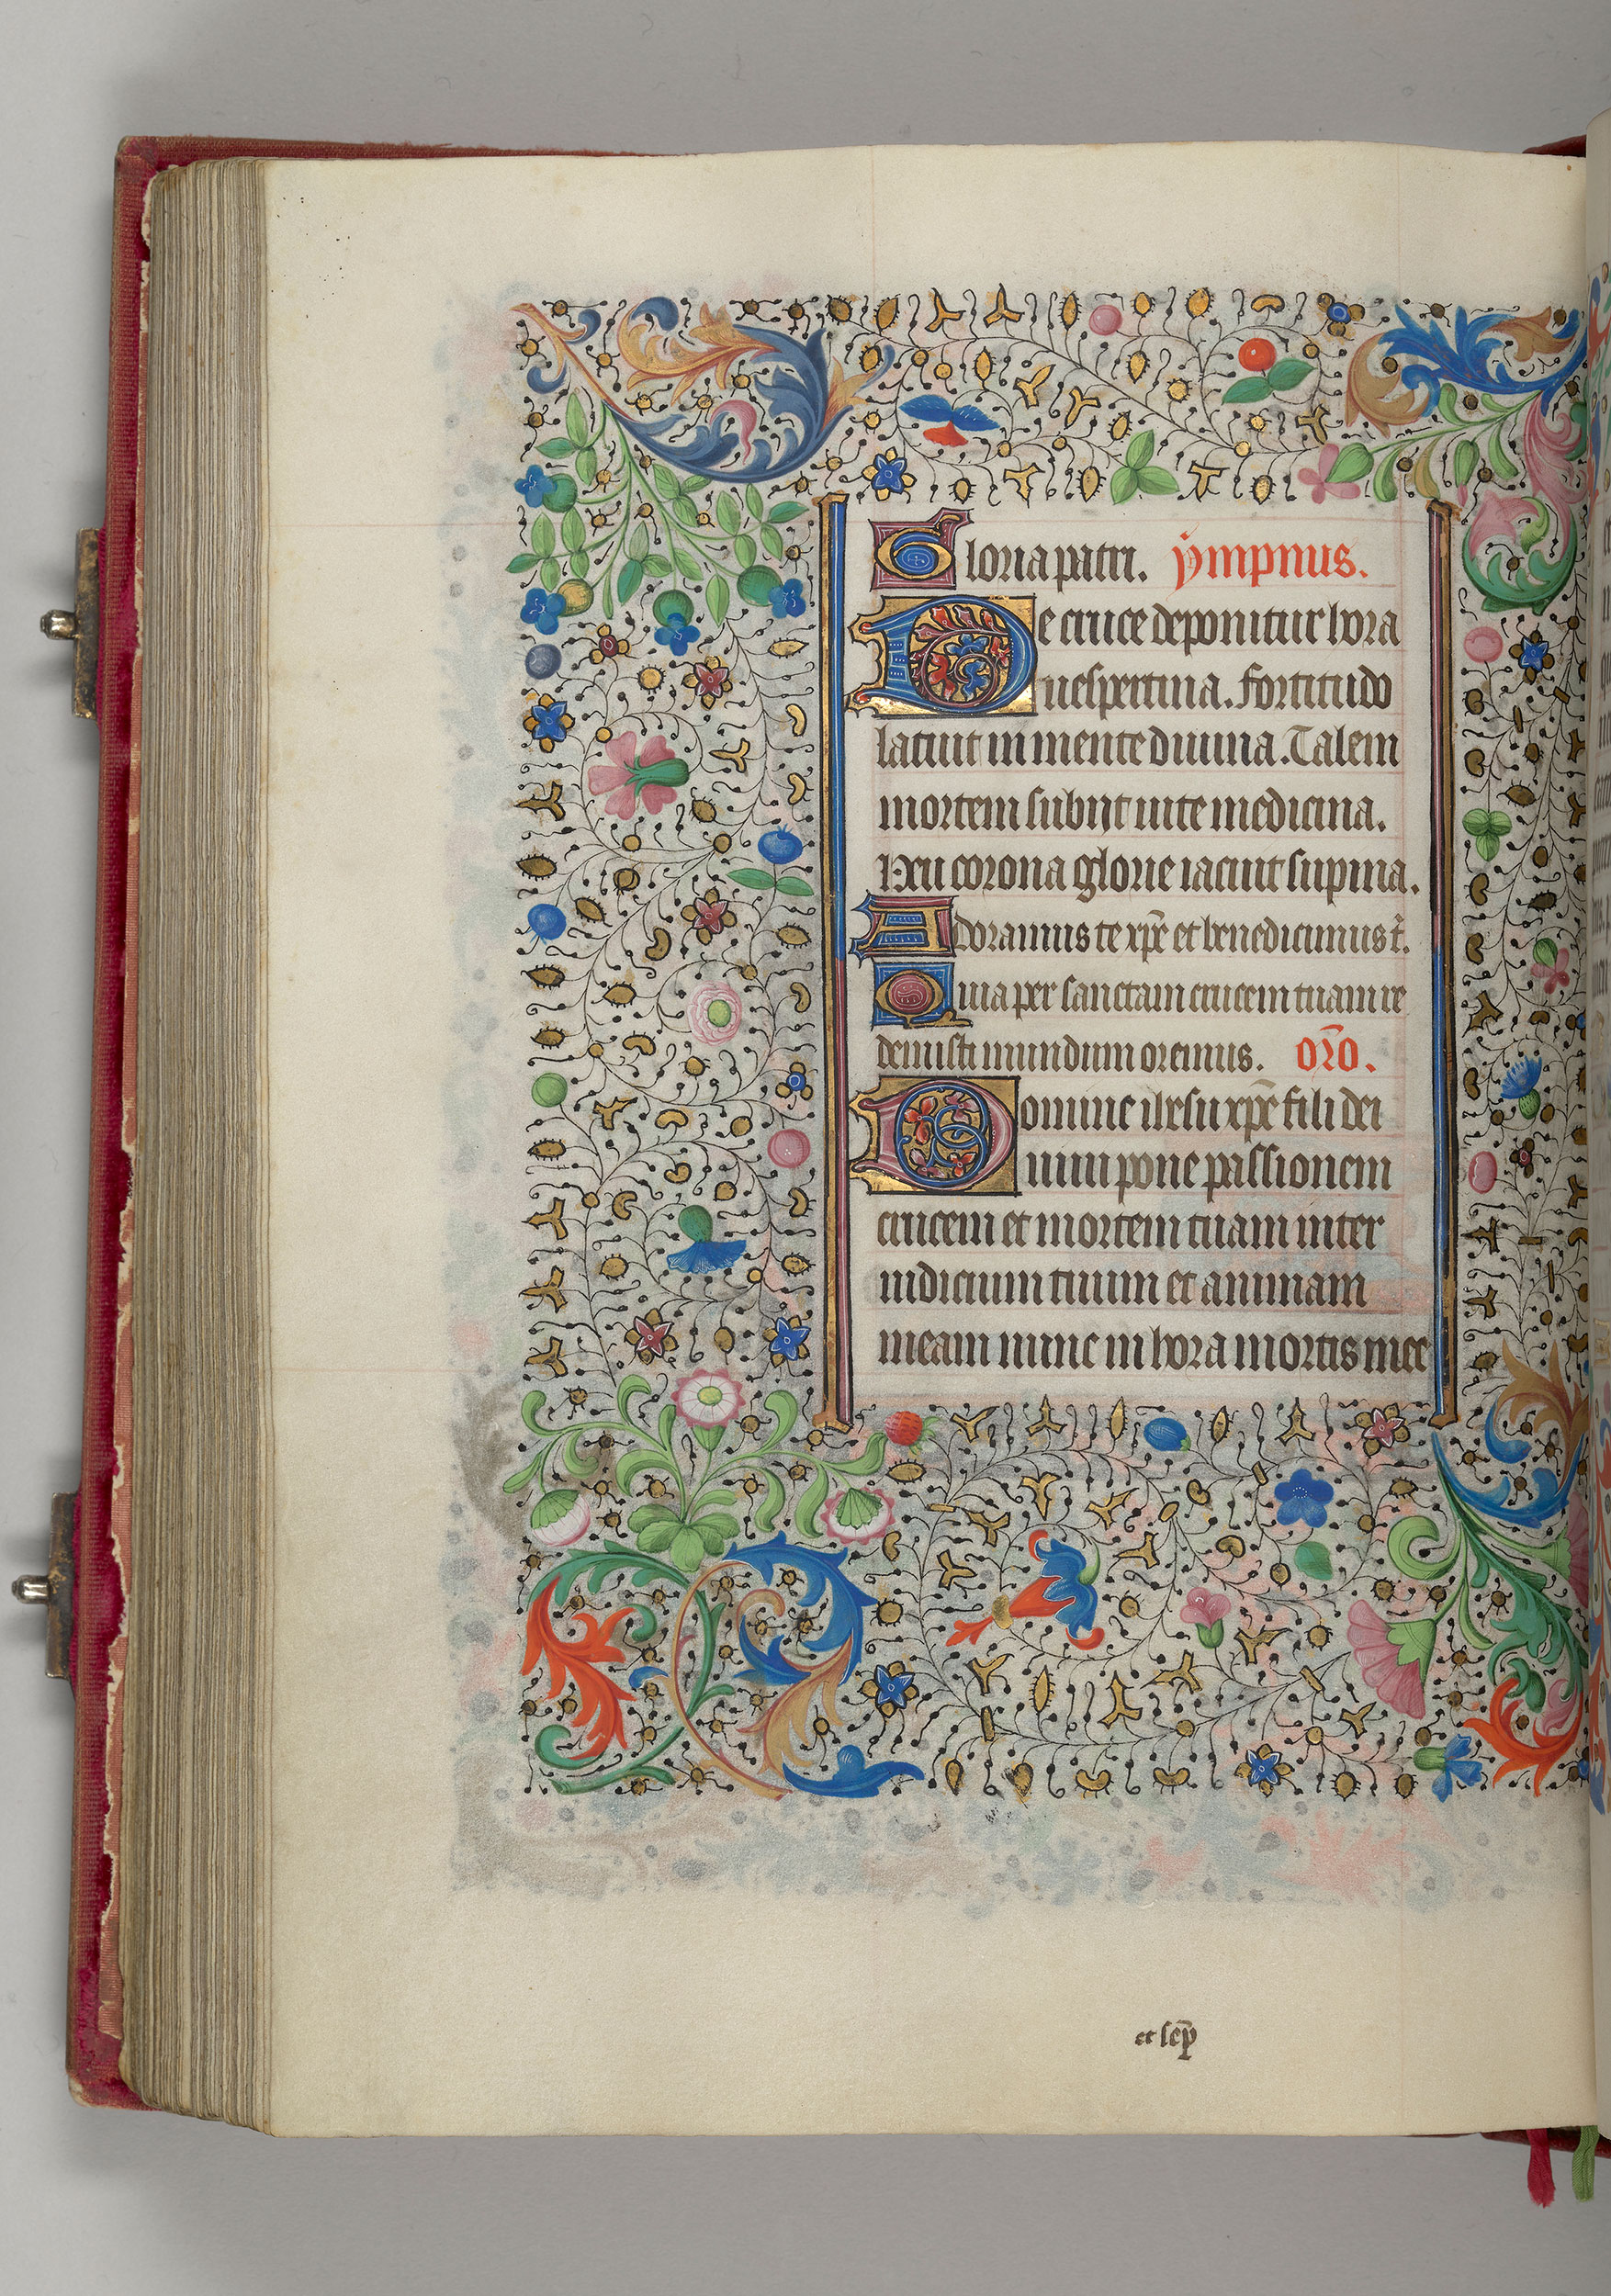 Gloria patri. ympnus.
De cruce deponitur hora
uespertina. fortitudo
latuit in mente diuina. Talem
mortem subijt uite medicina.
Heu corona glorie iacuit supina.
Adoramus te xp̄e et benedicimus t̉.
Quia per sanctam crucem tuam re
demisti mundum oremus. or̄o.
Domine ihesu xp̄e fili dei
uiui pone passionem
crucem et mortem tuam inter
iudicium tuum et animam
meam nunc in hora mortis mee
et sēp